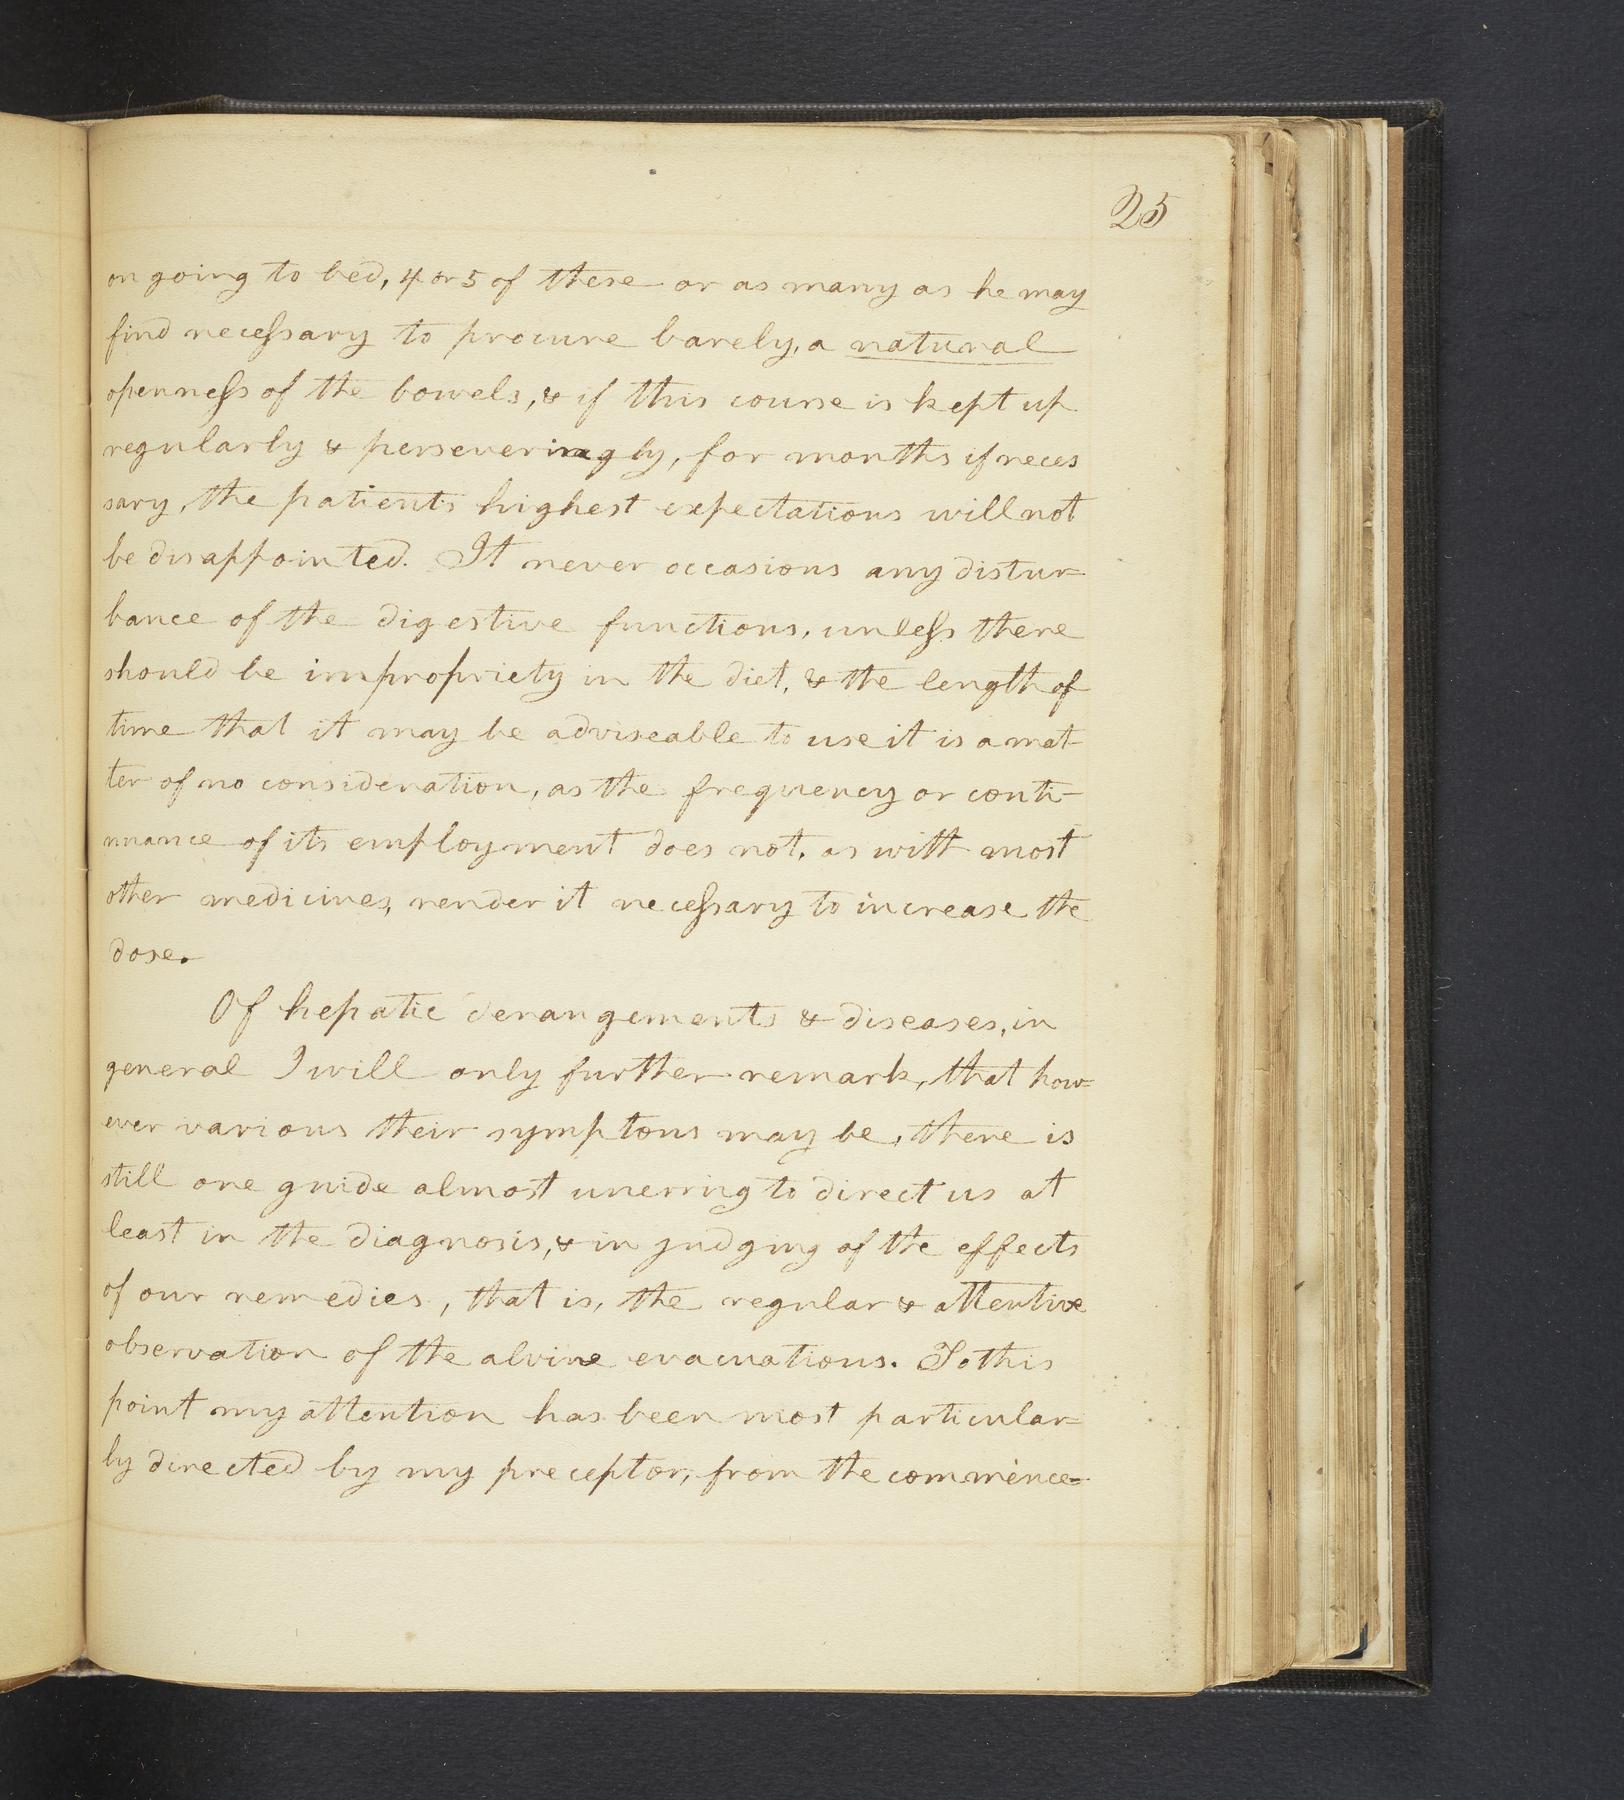 25
on going to bed, 4 or 5 of these or as many as he may
find necessary to procure barely, a natural
openness of the bowels, & if this course is kept up
regularly & perseveringly, for months if neces
sary, the patients highest expectations will not
be disappointed. It never occasions any distur=
bance of the digestive functions, unless there
should be impropriety in the diet, & the length of
time that it may be adviseable to use it is a mat-
ter of no consideration, as the frequency or conti-
nuance of its employment does not, as with most
other medicines, render it necessary to increase the
dose.
Of hepatic derangements & diseases, in
general I will only further remark, that how=
ever various their symptoms may be, there is
still one guide almost unerring to direct us at
least in the diagnosis, & in judging of the effects
of our remedies, that is, the regular & attentive
observation of the alvine evacuations. To this
point my attention has been most particular=
ly directed by my preceptor, from the commence=